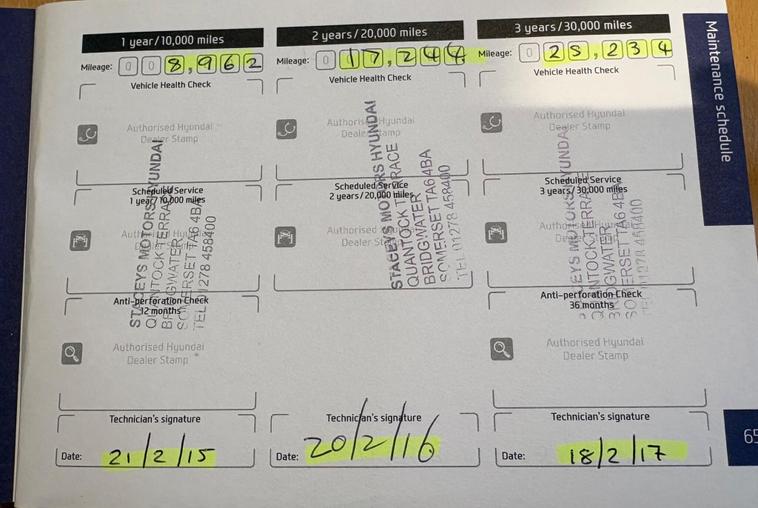 1 year/10,000 miles
Mileage: 0 0 8,962
Vehicle Health Check
Authorised Hyundai
Dealer Stamp
Scheduled Service
1 year/10,000 miles
Authorised Hyundai
Dealer Stamp
STACEYS MOTORS HYUNDAI
QUANTOCK TERRACE
BRIDGWATER
SOMERSET TA6 4BA
TEL 01278 458400
Anti-perforation Check
12 months
Authorised Hyundai
Dealer Stamp
Technician's signature
Date: 21/2/15
2 years/20,000 miles
Mileage: 0 17,244
Vehicle Health Check
Authorised Hyundai
Dealer Stamp
Scheduled Service
2 years/20,000 miles
Authorised Hyundai
Dealer Stamp
STACEYS MOTORS HYUNDAI
QUANTOCK TERRACE
BRIDGWATER
SOMERSET TA6 4BA
TEL 01278 458400
Technician's signature
Date: 20/2/16
3 years/30,000 miles
Mileage: 0 25,234
Vehicle Health Check
Authorised Hyundai
Dealer Stamp
Scheduled Service
3 years/30,000 miles
Authorised Hyundai
Dealer Stamp
STACEYS MOTORS HYUNDAI
QUANTOCK TERRACE
BRIDGWATER
SOMERSET TA6 4BA
TEL 01278 458400
Anti-perforation Check
36 months
Authorised Hyundai
Dealer Stamp
Technician's signature
Date: 18/2/17
Maintenance schedule